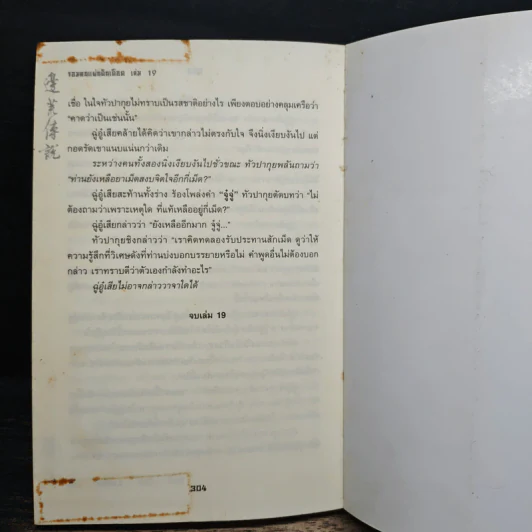 จอมคนแผ่นดินเดือด เล่ม 19
เชื่อ ในใจทัวปากุยไม่ทราบเป็นรสชาติอย่างไร เพียงตอบอย่างคลุมเครือว่า
"คาดว่าเป็นเช่นนั้น"
ฉู่อู๋เสียคล้ายได้คิดว่าเขากล่าวไม่ตรงกับใจ จึงนิ่งเงียบงันไป แต่
กอดรัดเขาแนบแน่นกว่าเดิม
ระหว่างคนทั้งสองนิ่งเงียบงันไปชั่วขณะ ทัวปากุยพลันถามว่า
"ท่านยังเหลือยาเม็ดสงบจิตใจอีกกี่เม็ด?"
ฉู่อู๋เสียสะท้านทั้งร่าง ร้องโพล่งคำ "จู๋จู่" ทัวปากุยตัดบทว่า "ไม่
ต้องถามว่าเพราะเหตุใด ที่แท้เหลืออยู่กี่เม็ด?"
ฉู่อู๋เสียกล่าวว่า "ยังเหลืออีกมาก จู๋จู่..."
ทัวปากุยชิงกล่าวว่า "เราคิดทดลองรับประทานสักเม็ด ดูว่าให้
ความรู้สึกที่วิเศษดังที่ท่านบ่งบอกบรรยายหรือไม่ คำพูดอื่นไม่ต้องบอก
กล่าว เราทราบดีว่าตัวเองกำลังทำอะไร"
ฉู่อู๋เสียไม่อาจกล่าววาจาใดได้
จบเล่ม 19
304
邊荒傳說